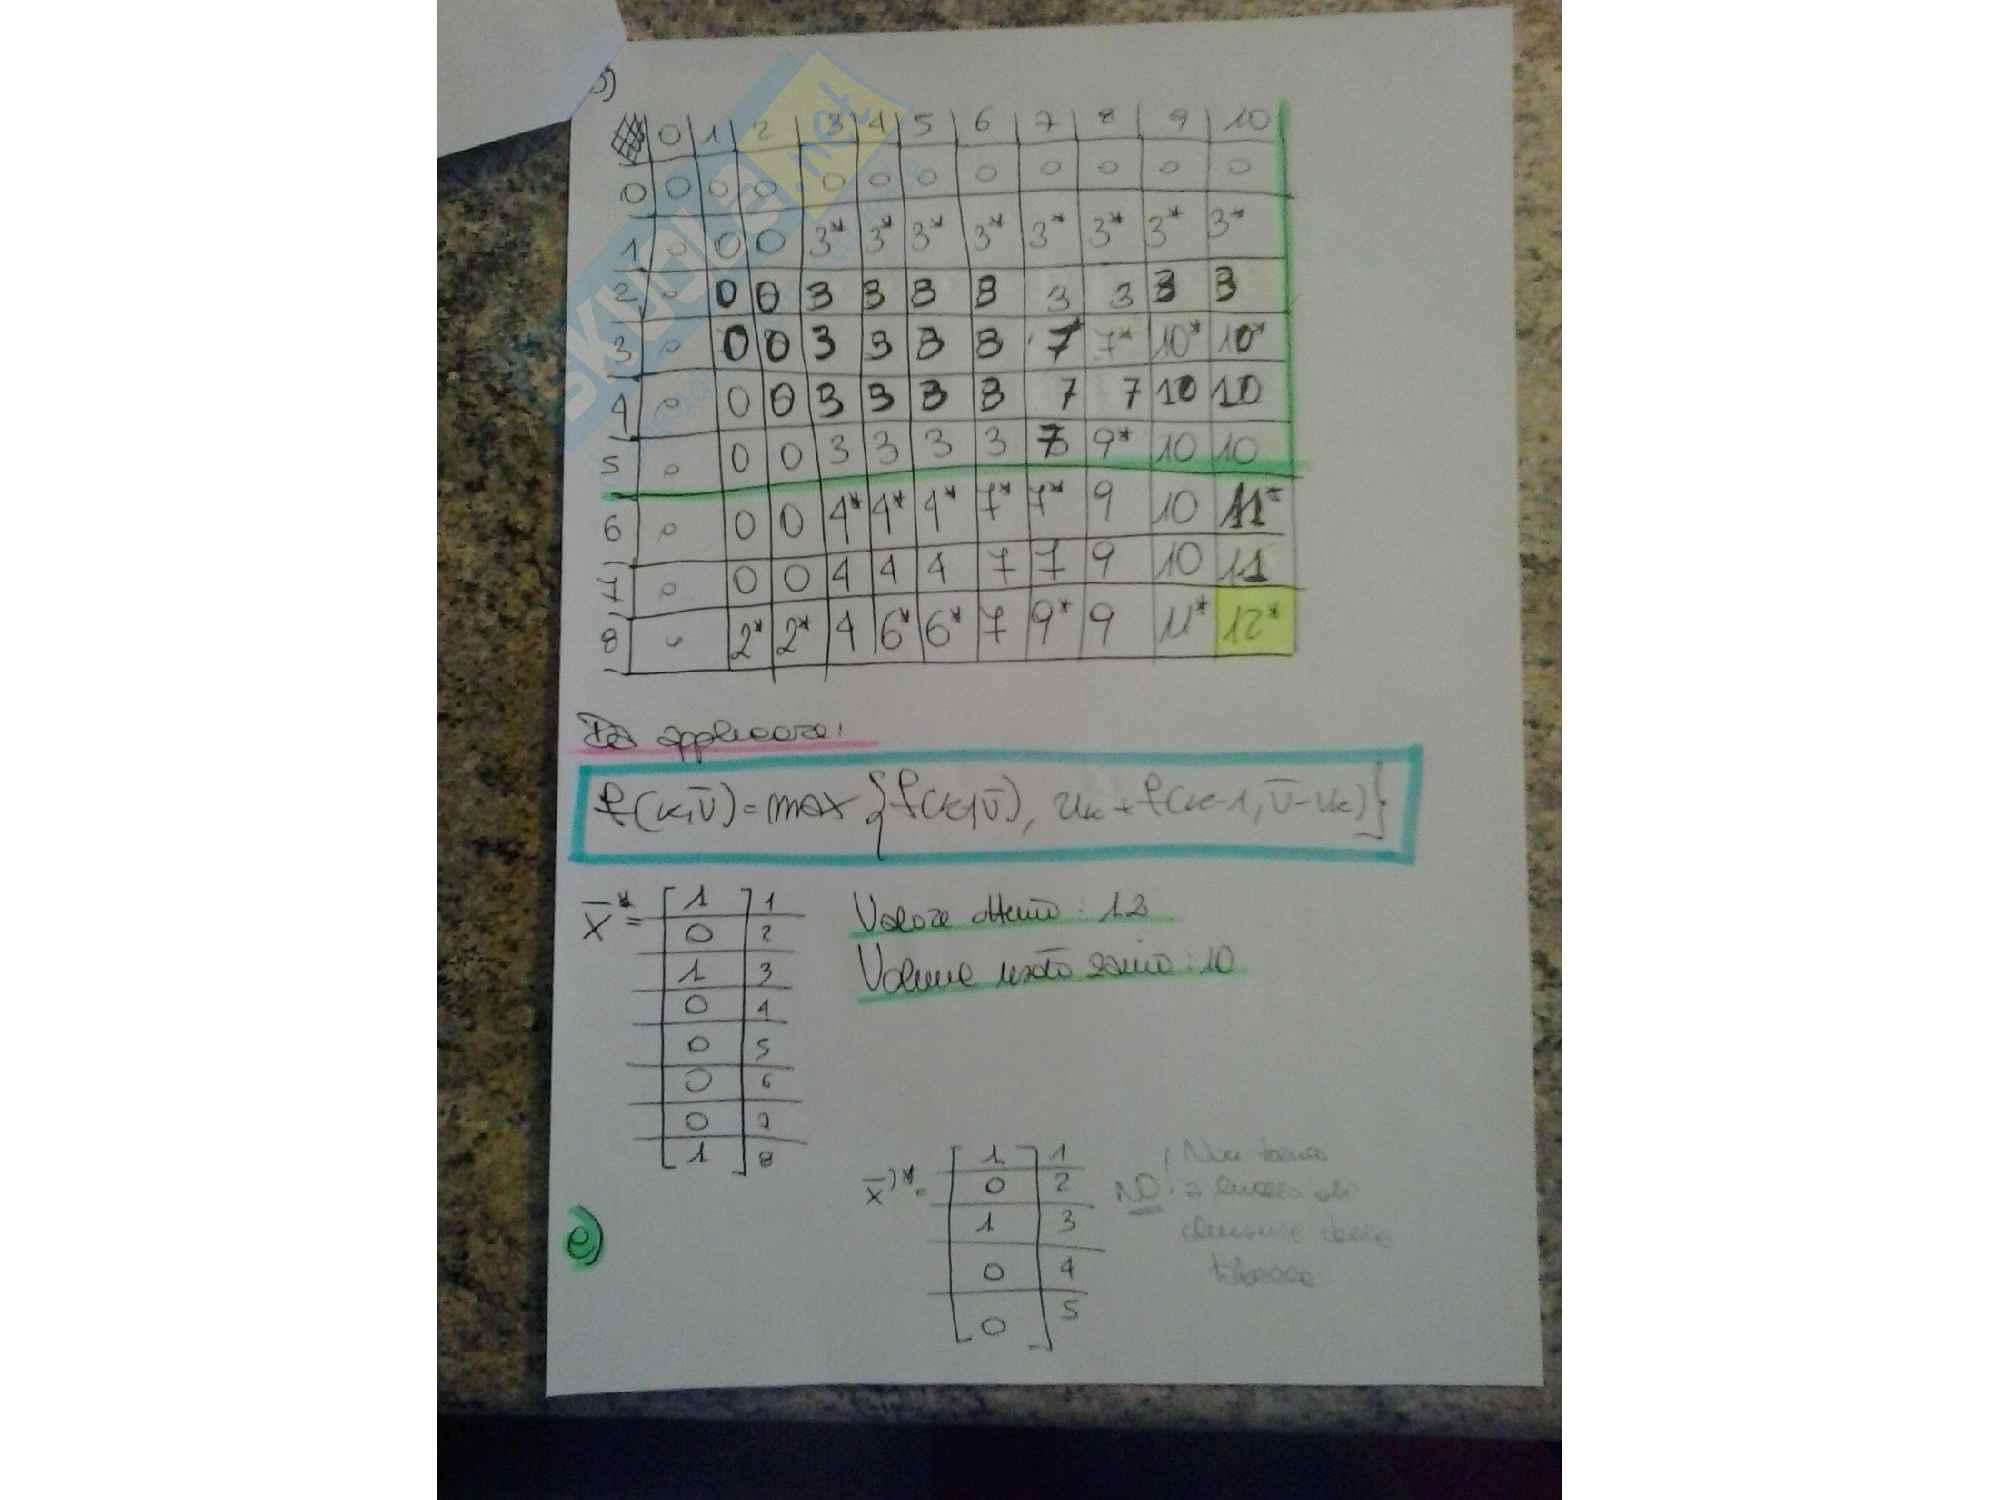 b)
0 1 2 3 4 5 6 7 8 9 10
0 0 0 0 0 0 0 0 0 0 0 0
1 0 0 0 3* 3* 3* 3* 3* 3* 3* 3*
2 0 0 0 3 3 3 3 3 3 3 3
3 0 0 0 3 3 3 3 7* 7* 10* 10*
4 0 0 0 3 3 3 3 7 7 10 10
5 0 0 0 3 3 3 3 7 9* 10 10
6 0 0 0 4* 4* 4* 7* 7* 9 10 11*
7 0 0 0 4 4 4 7 7 9 10 11
8 0 2* 2* 4 6* 6* 7 9* 9 11* 12*
applicare:
f(k,v̄) = max {f(k,v̄), uk + f(k-1, v̄-vk)}
x̄* = [1 0 1 0 0 0 0 1] 1 2 3 4 5 6 7 8
Valore ottenuto: 12
Volume usato zaino: 10
x̄)* = [1 0 1 0 0] 1 2 3 4 5
NO!
c)
skuola.net